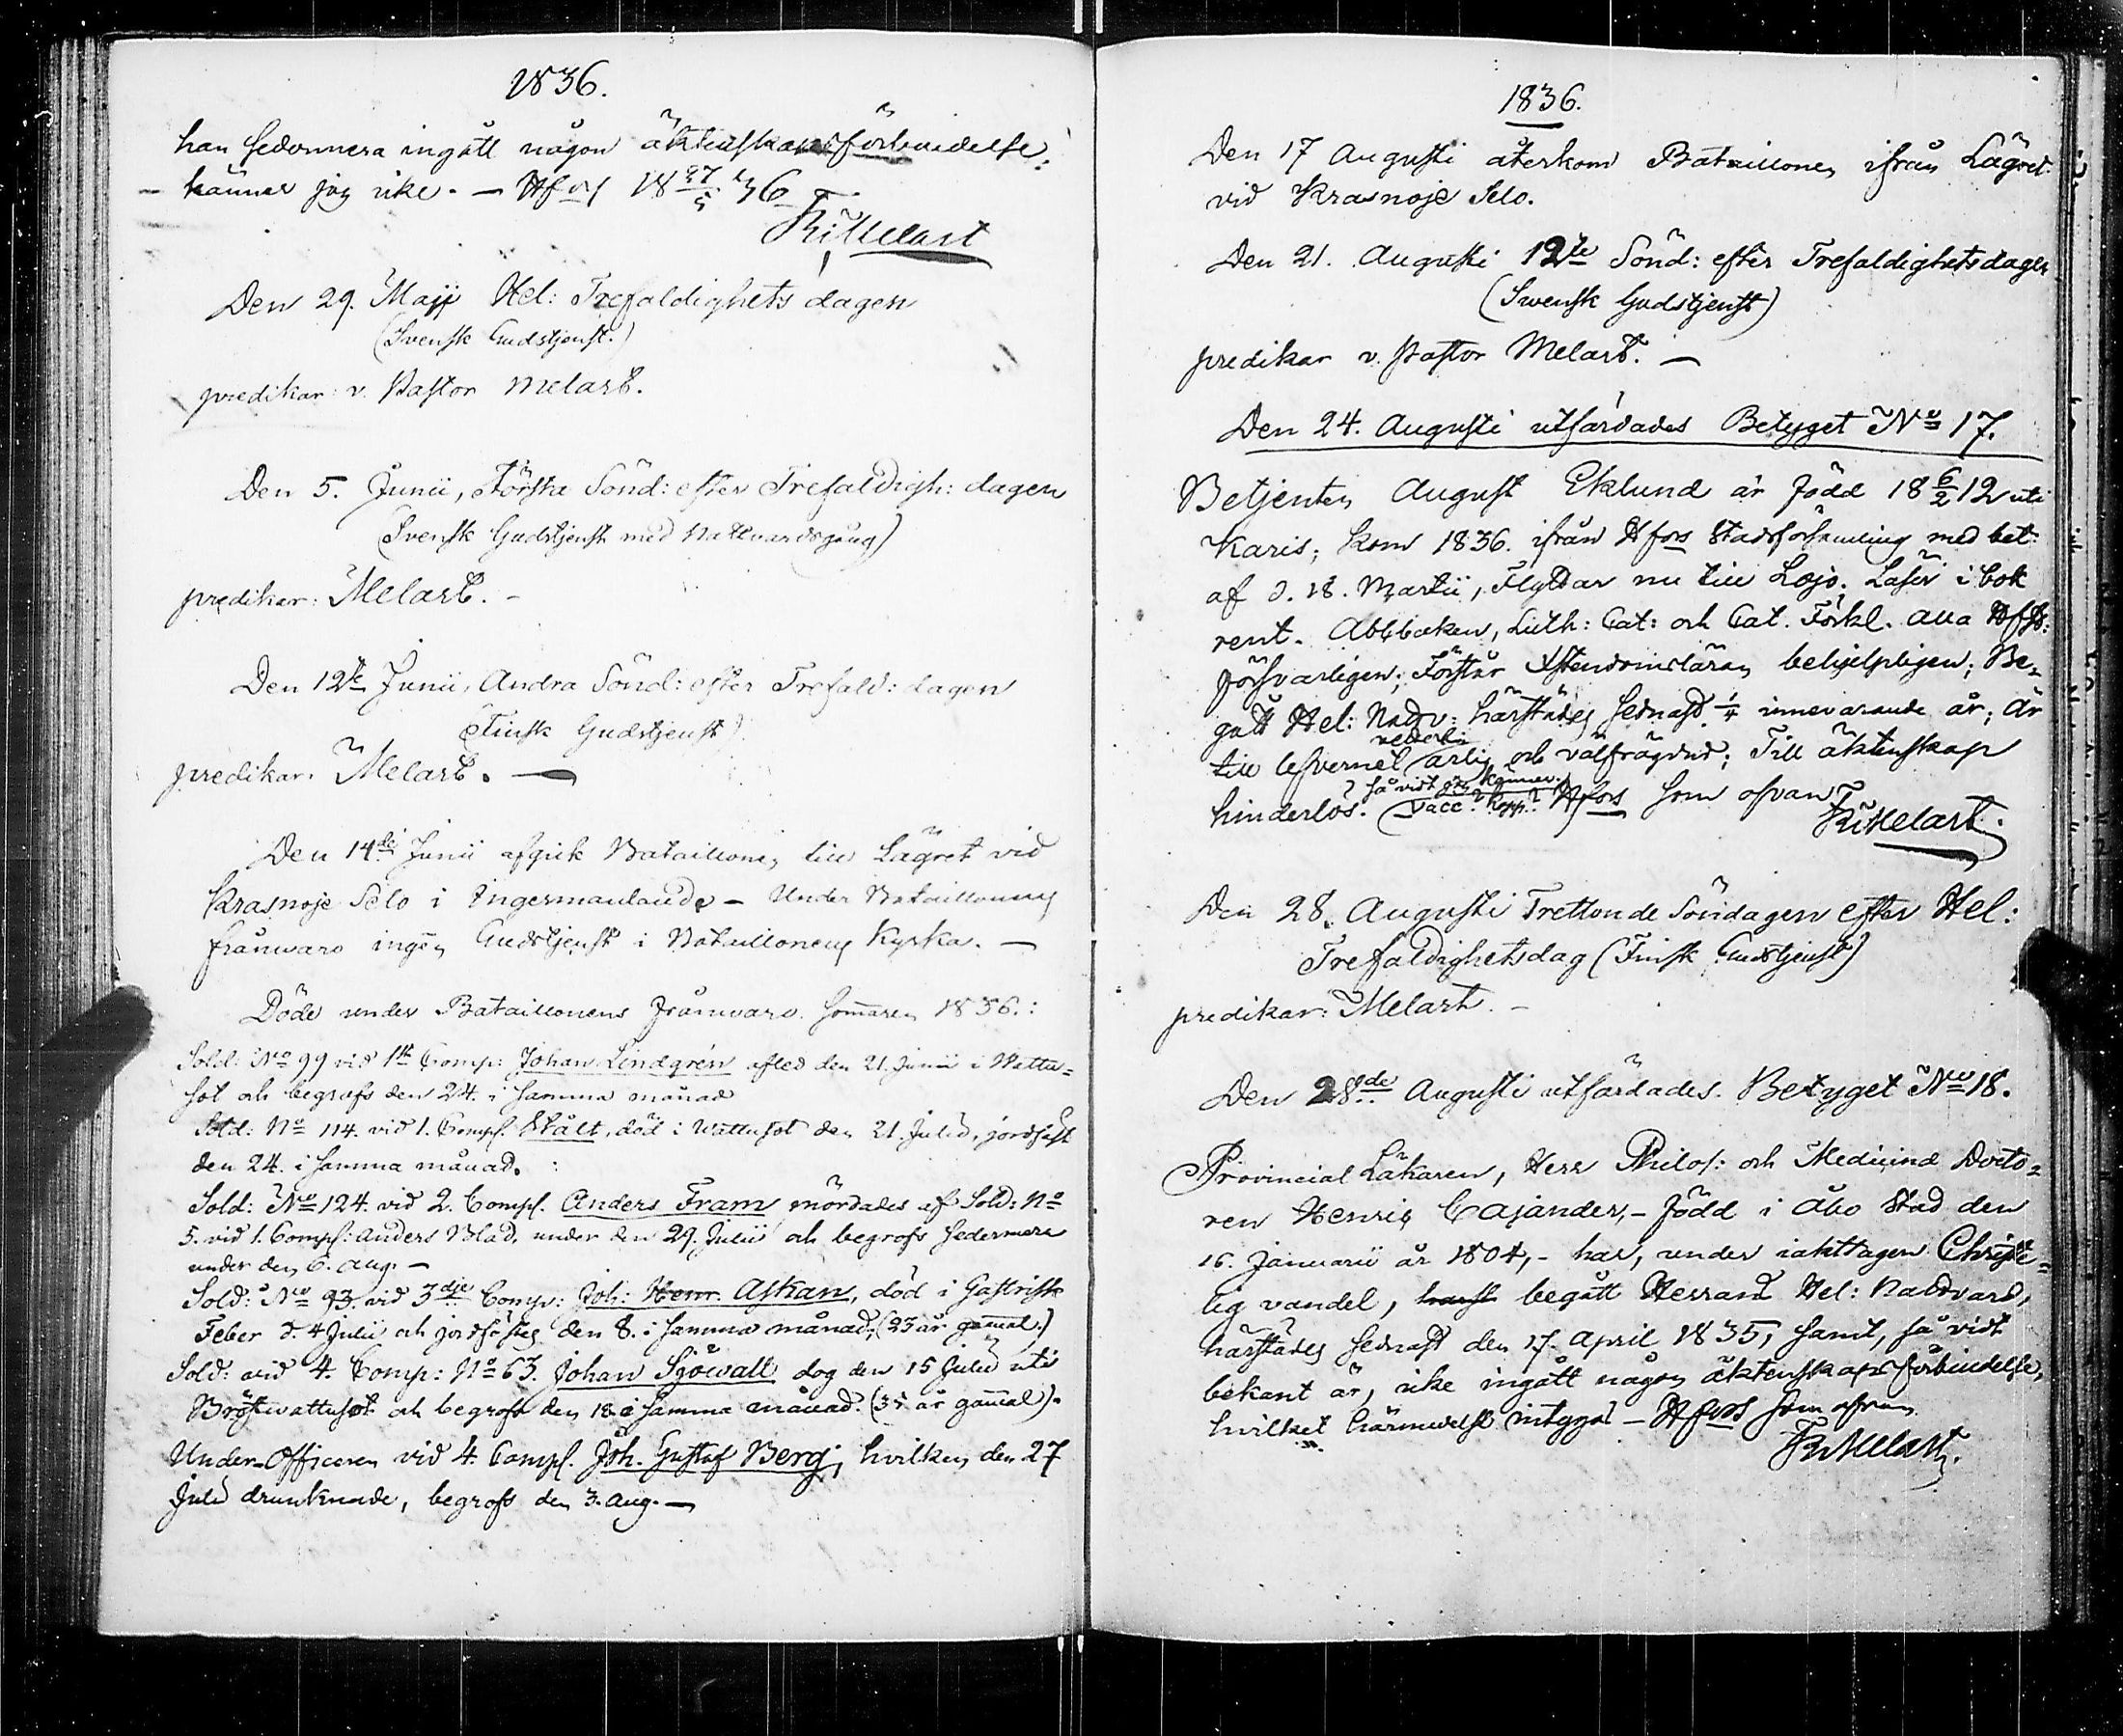 1836.
han sedermera ingått någon äktenskapsförbindelse:
känner jag icke. — Hfors 18 27/5 36
Melart
Den 29. Maji Hel: Trefaldighets dagen
(Svensk Gudstjenst.)
predikar: v. Pastor Melart.
Den 5. Junii, Första Sönd: efter Trefaldigh: dagen
(Svensk Gudstjenst med Nattvardsgång)
predikar: Melart. -
Den 12te Junii, Andra Sönd: efter Trefald: dagen
(Finsk Gudstjenst)
predikar: Melart. —
Den 14de Junii afgick Bataillonen till Lägret vid
Krasnoje Selo i Ingermanland. — Under Bataillonens
frånvaro ingen Gudstjenst i Bataillonens Kyrka. —
Döde under Bataillonens frånvaro sommaren 1836.:
Sold: No 99 vid 1sta Comp: Johan Lindgrén afled den 21. Junii i Wattu=
sot och begrofs den 24. i samma månad
Sold: No 114. vid 1. Comp. Stålt, död i Wattusot den 21. Julii, jordfäst
den 24. i samma månad.
Sold: No 124. vid 2. Comp. Anders Fram mördades af Sold: No
5. vid 1. Comp: Anders Blad, under den 29. Julii och begrofs sedermera
under den 6. Aug. —
Sold: No 93. vid 3dje Comp: Joh: Henr. Askan, död i Gastrisk
Feber d. 4 Julii och jordfästes den 8. i samma månad. (23 år gamal.)
Sold: vid 4. Comp: No 63. Johan Sjöwall dog den 15 Julii uti
Bröstwattusot och begrofs den 18. i samma månad. (35 år gamal).
Under-Officeren vid 4. Comp. Joh. Gustaf Berg, hvilken den 27
Julii drunknade, begrofs den 3. Aug. —
1836.
Den 17 Augusti återkom Bataillonen ifrån Lägret
vid Krasnoje Selo.
Den 21. Augusti 12te Sönd: efter Trefaldighetsdagen
(Swensk Gudstjenst)
predikar v. Pastor Melart. —
Den 24. Augusti utfärdades Betyget No 17.
Betjenten August Eklund är född 18 6/2 12 uti
Karis; kom 1836. ifrån Hfors Stadsförsamling med bet
af d. 18. Martii, Flyttar nu till Lojo. Läser i bok
rent. Abbboken, Luth: Cat: och Cat. Förkl. alla
försvarligen; Förstår Christendomsläran behjelpligen; Be=
gått Hel: Nadv: härstädes sednast 1/4 innevarande år; Är
till lefvernet ärlig och välfrägdad; Till äktenskap
så vidt jag känner.
hinderlös. (Vacc. Kopp.) Hfors som ofvan
Melart.
Den 28. Augusti Trettonde Söndagen efter Hel:
Trefaldighetsdag (Finsk Gudstjenst)
predikar: Melart. -
Den 28de Augusti utfärdades Betyget No 18.
Provincial Läkaren, Herr Philos: och Medicinæ Docto=
ren Henric Cajander, - född i Åbo Stad den
16. Januarii år 1804, - har, under iakttagen Christe=
lig vandel, begått Herrans Hel: Nattvard,
härstädes sednast den 17. April 1835, samt, så vidt
bekant är, icke ingått någon äktenskapsförbindelse,
hvilket härmedelst intygas — Hfors som ofvan
Melart.